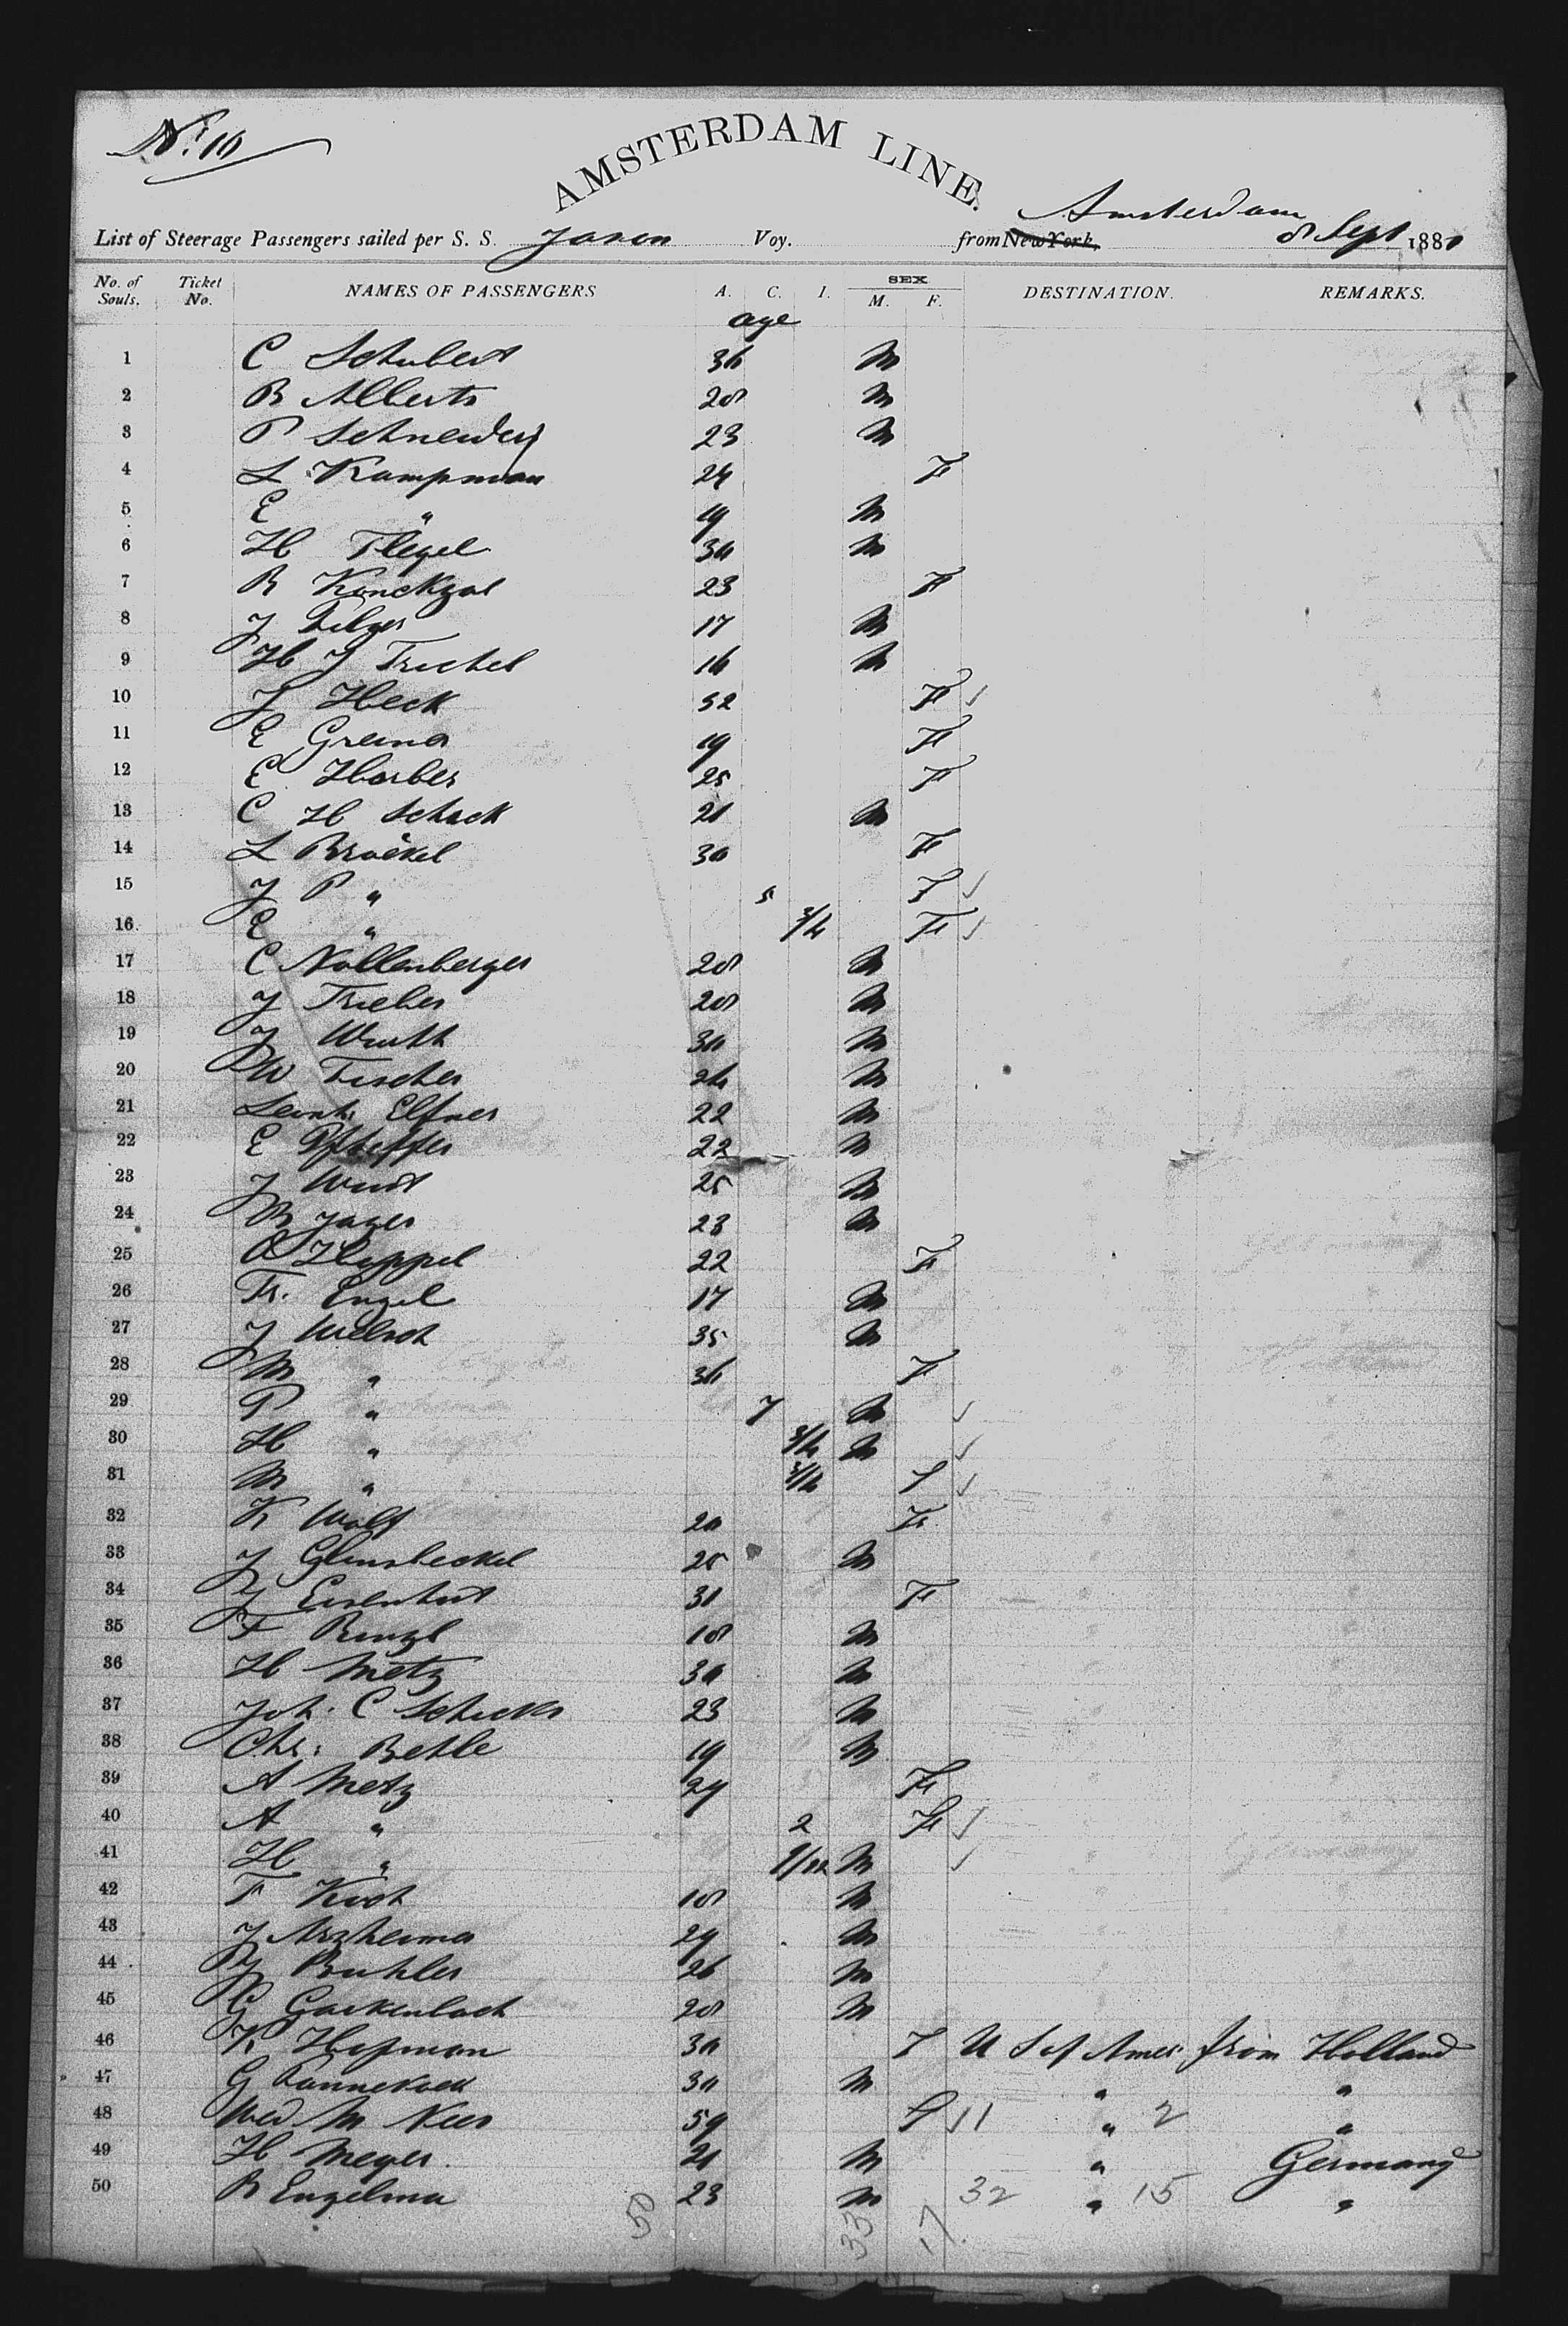 No. 10
AMSTERDAM LINE.
Amsterdam
List of Steerage Passengers sailed per S. S. Jason Voy. from New York, 8 Sept 1880
No. of Souls. Ticket No. NAMES OF PASSENGERS A. C. I. SEX M. F. DESTINATION. REMARKS.
age
1 C Schubert 36 M
2 B Alberts 28 M
3 P Schneider 23 M
4 L Kampman 24 F
5 E " 19 M
6 H Flegel 30 M
7 R 23 F
8 J 17 M
9 H J Trichel 16 M
10 J Heck 52 F ✓
11 E Greiner 19 F
12 E Harber 25 F
13 C H Schack 21 M
14 L Bröckel 30 F
15 J P " 5 F ✓
16 E " 3/4 F ✓
17 C Nollenberger 28 M
18 J Trieber 28 M
19 J Wurth 30 M
20 W Fischer 24 M
21 Elfner 22 M
22 E Pfheffer 22 M
23 J 25 M
24 B Jager 23 M
25 Heppel 22 F
26 Fr. Engel 17 M
27 J Welsch 35 M
28 M " 36 F
29 P " 7 M ✓
30 H " 3/4 M ✓
31 M " 3/4 F ✓
32 K Wolf 20 F
33 J 25 M
34 J Eisenhut 31 F
35 F 18 M
36 H Metz 30 M
37 Joh. C 23 M
38 Chr. Behle 19 M
39 A Metz 24 F
40 A " 2 F ✓
41 H " M ✓
42 F Koch 18 M
43 J Arzheimer 29 M
44 J Buhler 26 M
45 G Gackenbach 28 M
46 K Hofman 30 F U S of Amer from Holland
47 G Pannekoek 30 M " "
48 Wed M Nees 59 F ✓ 11 " 2 "
49 H Meyer 21 M " Germany
50 B Engelma 23 M 32 " 15 "
50 33 17